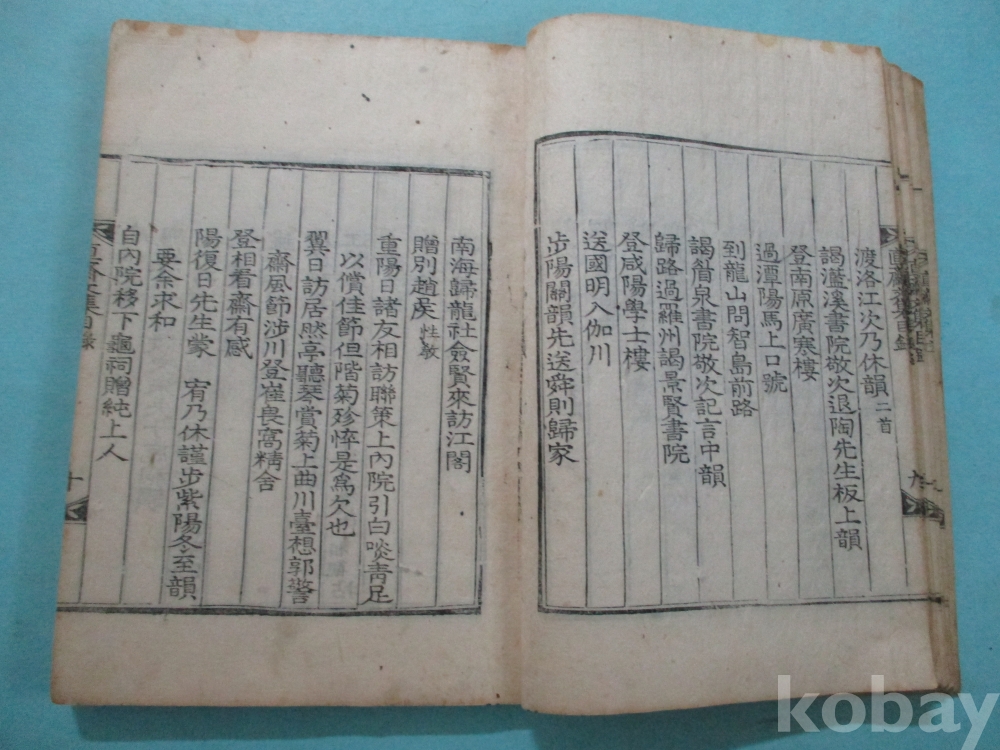 渡洛江次乃休韻 二首
謁灆溪書院敬次退陶先生板上韻
登南原廣寒樓
過潭陽馬上口號
到龍山問智島前路
謁眢泉書院敬次記言中韻
歸路過羅州謁景賢書院
登咸陽學士樓
送國明入伽川
步陽關韻先送舜則歸家
南海歸龍社僉賢來訪江閣
贈別趙戾 性敎
重陽日諸友相訪聯策上內院引白啖靑足
以償佳節但階菊殄悴是爲欠也
翼日訪居然亭聽琴賞菊上曲川臺想郭警
齋風節涉川登崔畏窩精舍
登相看齋有感
陽復日先生蒙 宥乃休謹步紫陽冬至韻
要余求和
自內院移下龜祠贈純上人
十
kobay